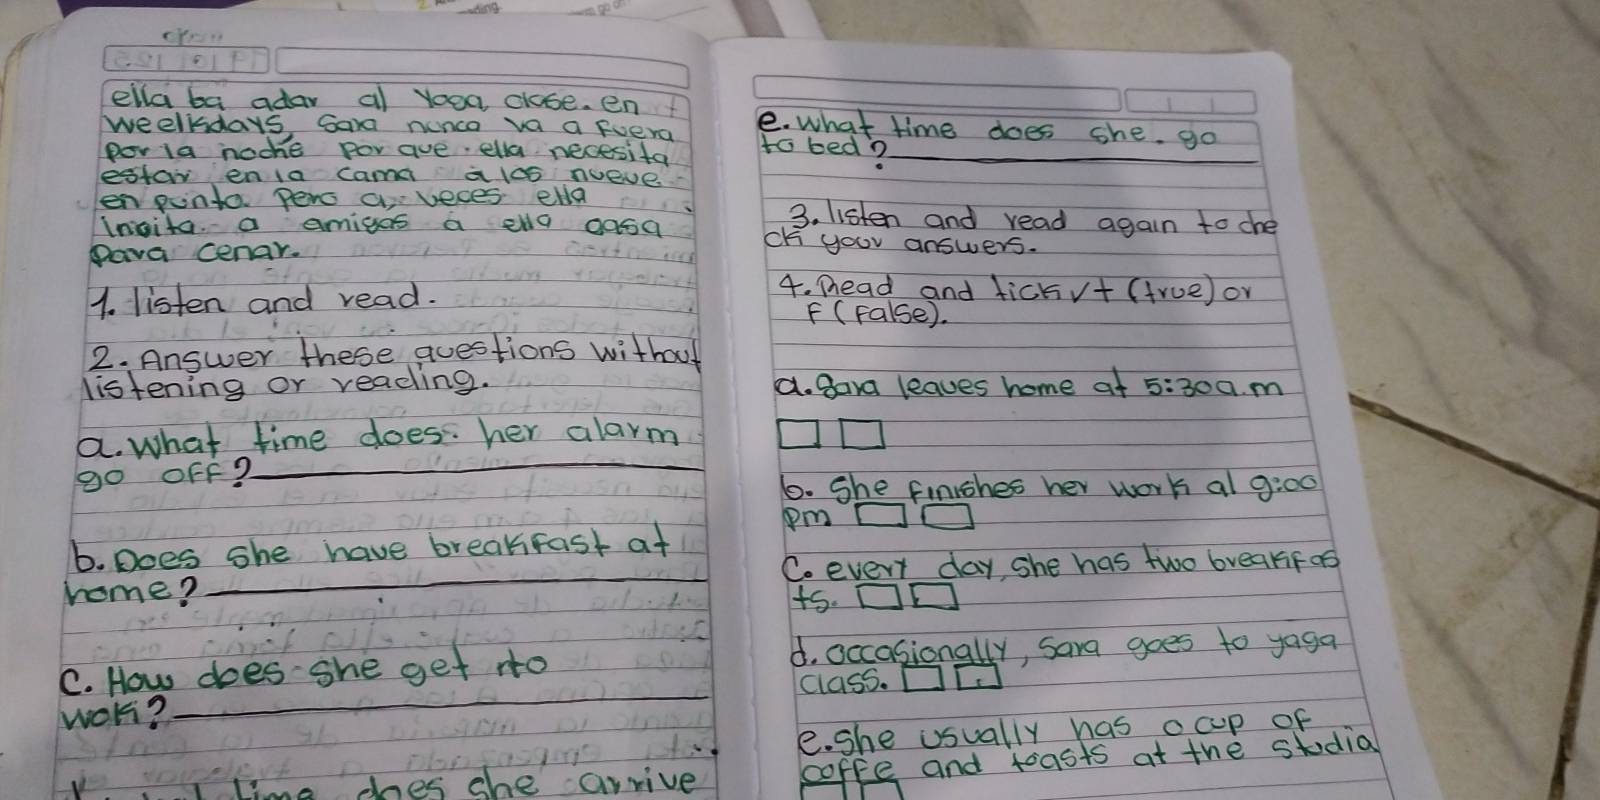 ella ba adar al Yoga clase. en
weelksdays, Sara nunca va a Fuera
por la noche por que. ella necesita
estar en la cama a las nueve
en punto. Pero a veces ella
invita a amigas a ella casa
para cenar.
1. listen and read.
2. Answer these questions without
listening or reading.
a. What time does her alarm
go off?
b. Does she have breakfast at
home?
c. How does she get to
wok?
time does she arrive
e. what time does she. go
to bed?
3. listen and read again to che
ck your answers.
4. Read and tick √ t (true) or
F (False).
a. Sara leaves home at 5:30a.m
b. She finishes her work al 9:00
pm
c. every day, she has two breakfas
ts.
d. occasionally, Sara goes to yaga
class.
e. she usually has a cup of
coffe and toasts at the studia